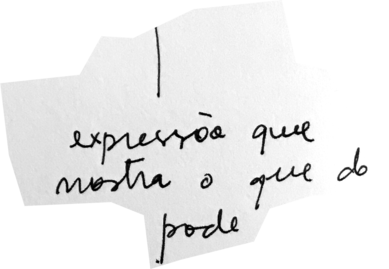 expressão que
mostra o que do
pode